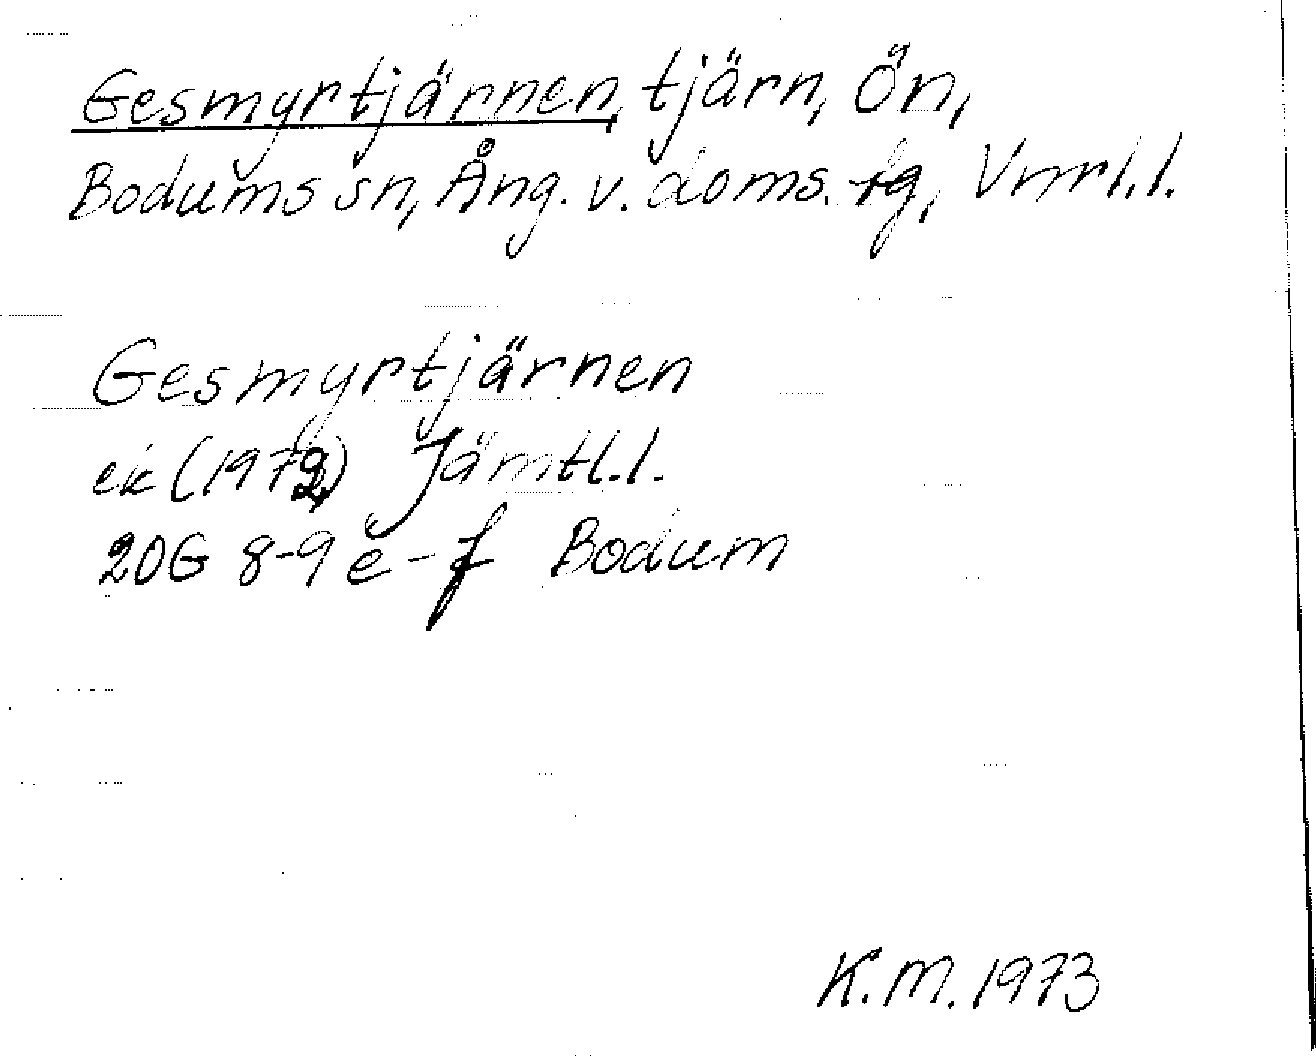 Gesmyrtjärnen, tjärn, Ön,
Bodums sn, Ång. v. doms. tg, Vnrl.l.
Gesmyrtjärnen
ek (1972) Jämtl.l.
20G 8-9 e-f Bodum
K.M. 1973